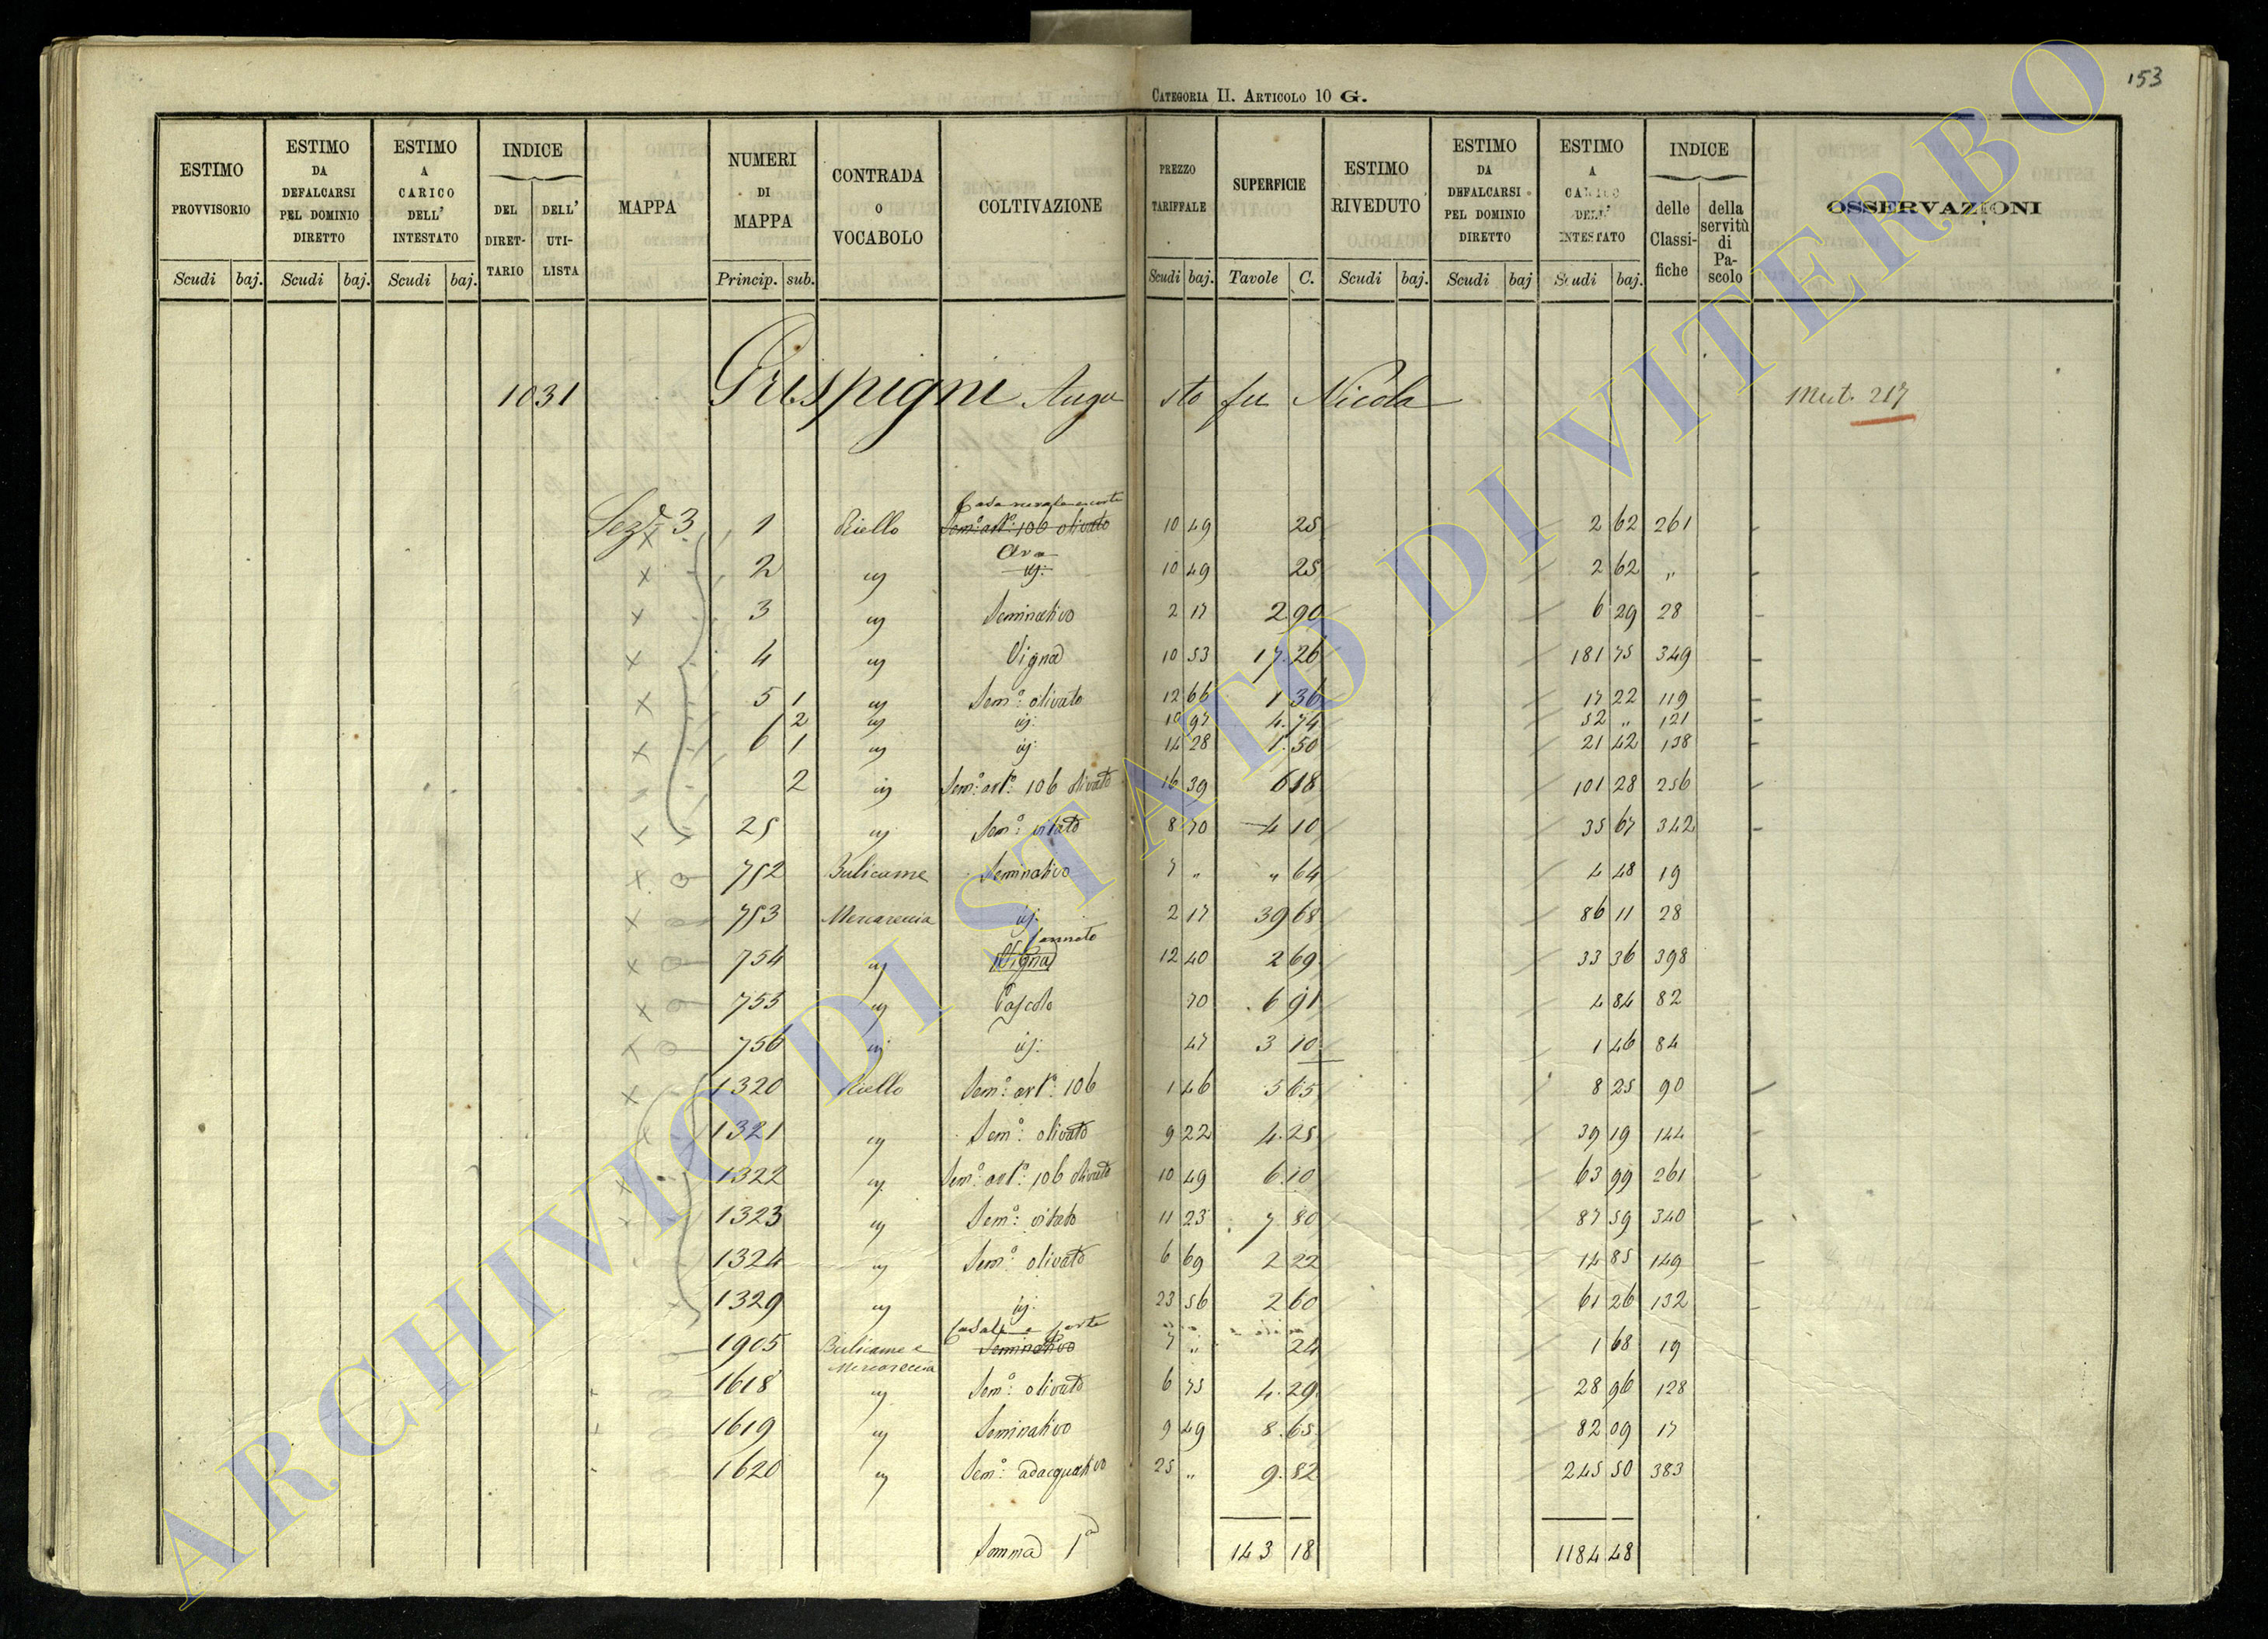 153
CATEGORIA II. ARTICOLO 10 G.
ESTIMO PROVVISORIO Scudi baj.
ESTIMO DA DEFALCARSI PEL DOMINIO DIRETTO Scudi baj.
ESTIMO A CARICO DELL' INTESTATO Scudi baj.
INDICE DEL DIRETTARIO DELL' UTILISTA
MAPPA
NUMERI DI MAPPA Princip. sub.
CONTRADA O VOCABOLO
COLTIVAZIONE
PREZZO TARIFFALE Scudi baj.
SUPERFICIE Tavole C.
ESTIMO RIVEDUTO Scudi baj.
ESTIMO DA DEFALCARSI PEL DOMINIO DIRETTO Scudi baj
ESTIMO A CARICO DELL' INTESTATO Scudi baj.
INDICE delle Classifiche della servitù di Pascolo
OSSERVAZIONI
1031 Grispigni Augusto fu Nicola Mut. 217
Sez.e 3 1 Riello Sem.o art.o 106 olivato 10 49 25 2 62 261
Ara
2 " id: 10 49 25 2 62 "
3 " Seminativo 2 17 2 90 6 29 28
4 " Vigna 10 53 17.26 181 75 349
5 1 " Sem.o olivato 12 66 1 36 17 22 119
2 " id: 10 97 4.74 52 " 121
6 1 " id: 14 28 1.50 21 42 138
2 " Sem.o art.o 106 olivato 16 39 6 18 101 28 256
25 " Sem.o vitato 8 70 4 10 35 67 342
752 Bulicame Seminativo 7 " " 64 4 48 19
753 Mercareccia id: 2 17 39 68 86 11 28
Canneto
754 " Vigna 12 40 2 69 33 36 398
755 " Pascolo 70 6 91 4 84 82
756 " id: 47 3 10 1 46 84
1320 Riello Sem.o art.o 106 1 46 5 65 8 25 90
1321 " Sem.o olivato 9 22 4.25 39 19 144
1322 " Sem.o art.o 106 olivato 10 49 6.10 63 99 261
1323 " Sem.o vitato 11 23 7 80 87 59 340
1324 " Sem.o olivato 6 69 2 22 14 85 149
1329 " id: 23 56 2 60 61 26 132
Casale e Corte
1905 Bulicame e Mercareccia Seminativo 7 " 24 1 68 19
1618 " Sem.o olivato 6 75 4.29 28 96 128
1619 " Seminativo 9 49 8.65 82 09 17
1620 " Sem.o adacquativo 25 " 9.82 245 50 383
Somma 1a 143 18 1184 48
ARCHIVIO DI STATO DI VITERBO